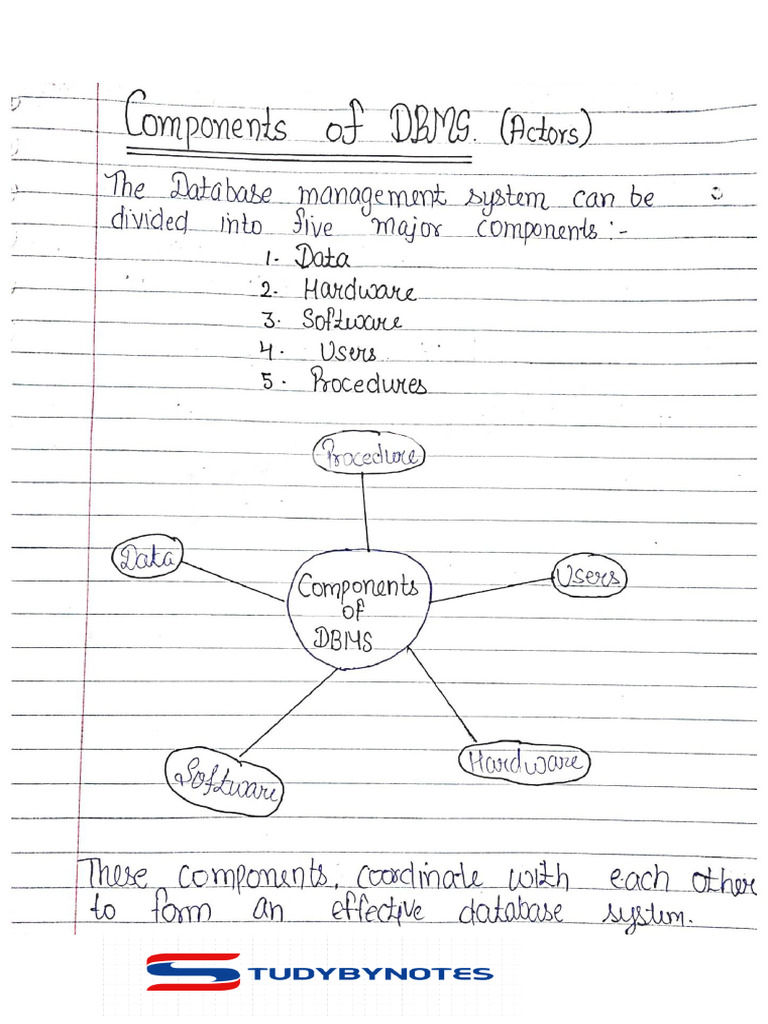 Components of DBMS. (Actors)
The Database management system can be
divided into five major components:-
1. Data
2. Hardware
3. Software
4. Users
5. Procedures
Procedure
Data
Users
Components
of
DBMS
Software
Hardware
These components, coordinate with each other
to form an effective database system.
STUDYBYNOTES